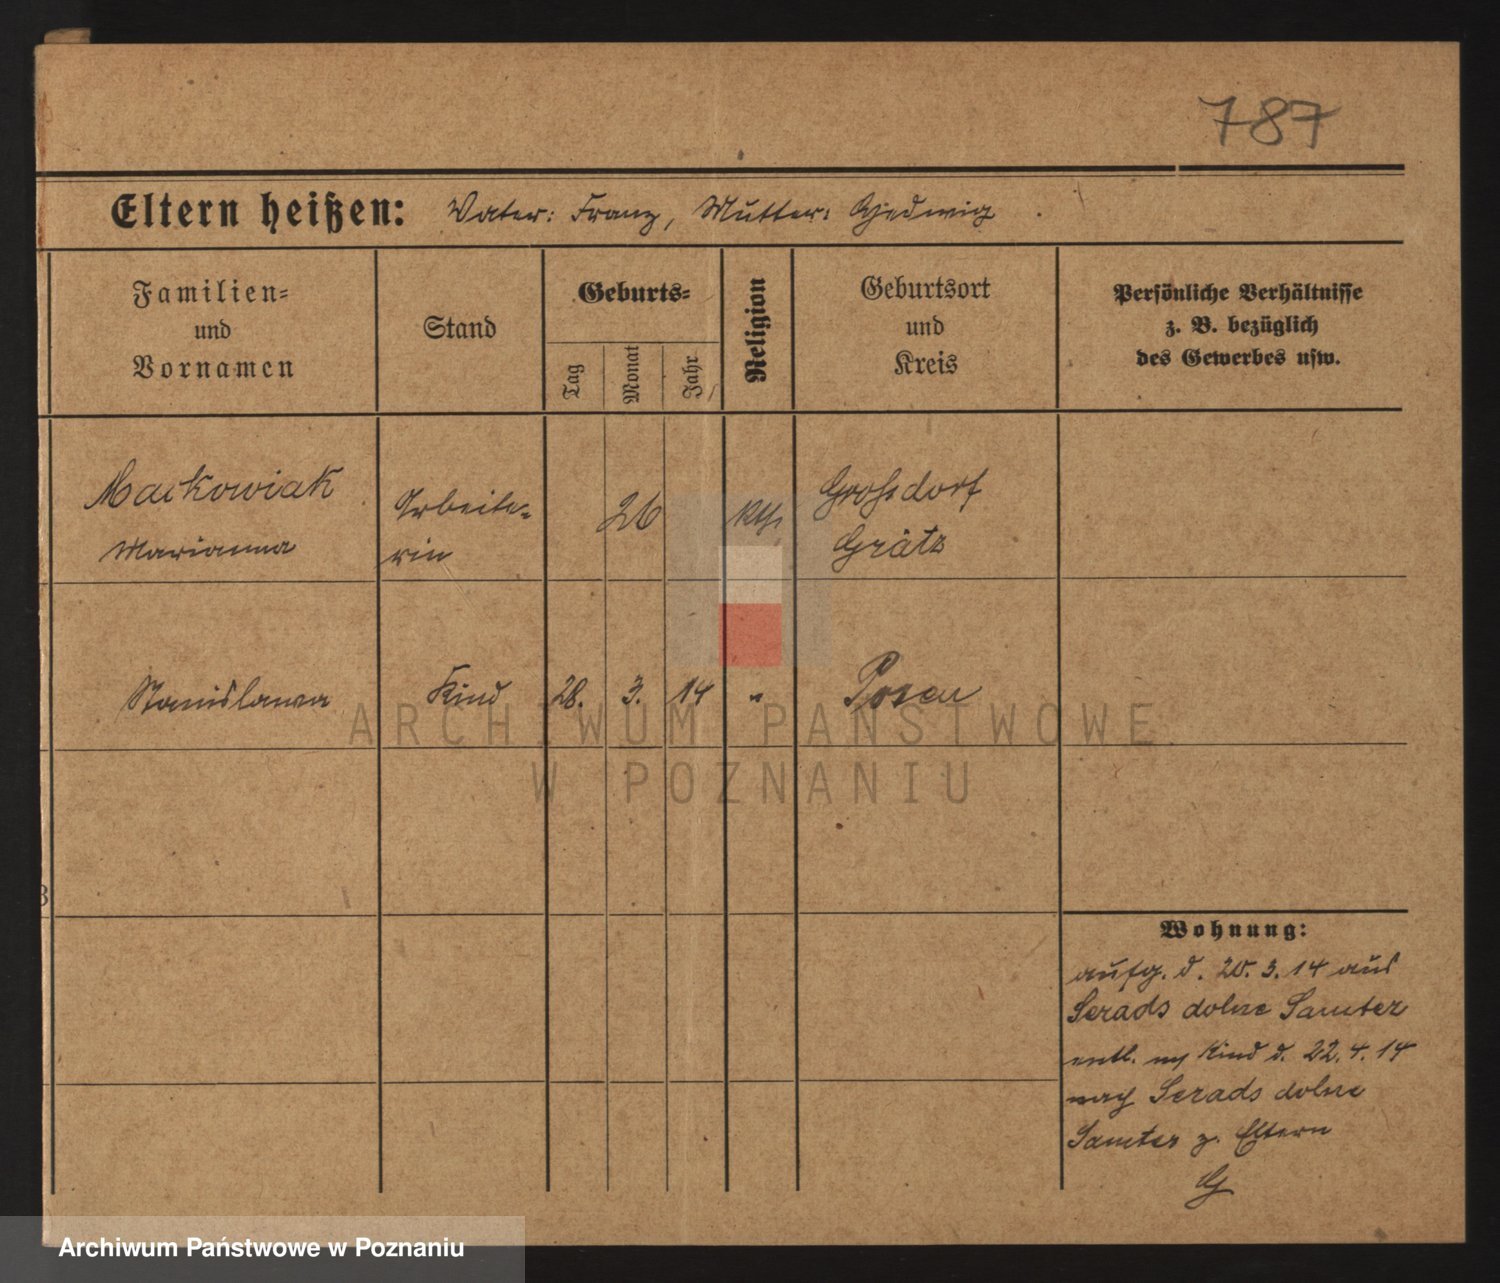 787
Eltern heißen: Vater: Franz, Mutter: Hedwig
Familien-
und
Vornamen
Stand
Geburts-
Tag
Monat
Jahr
Religion
Geburtsort
und
Kreis
Persönliche Verhältnisse
z. B. bezüglich
des Gewerbes usw.
Mackowiak
Marianna
Arbeite-
rin
26
kth.
Grohsdorf
Grätz
Stanislawa
Kind
28.
3.
14
"
Posen
Wohnung:
aufg. d. 20. 3. 14 aus
Serads dolne Samter
entl. m/ Kind d. 22. 4. 14
nach Serads dolne
Samter z. Eltern
ARCHIWUM PAŃSTWOWE
W POZNANIU
Archiwum Państwowe w Poznaniu